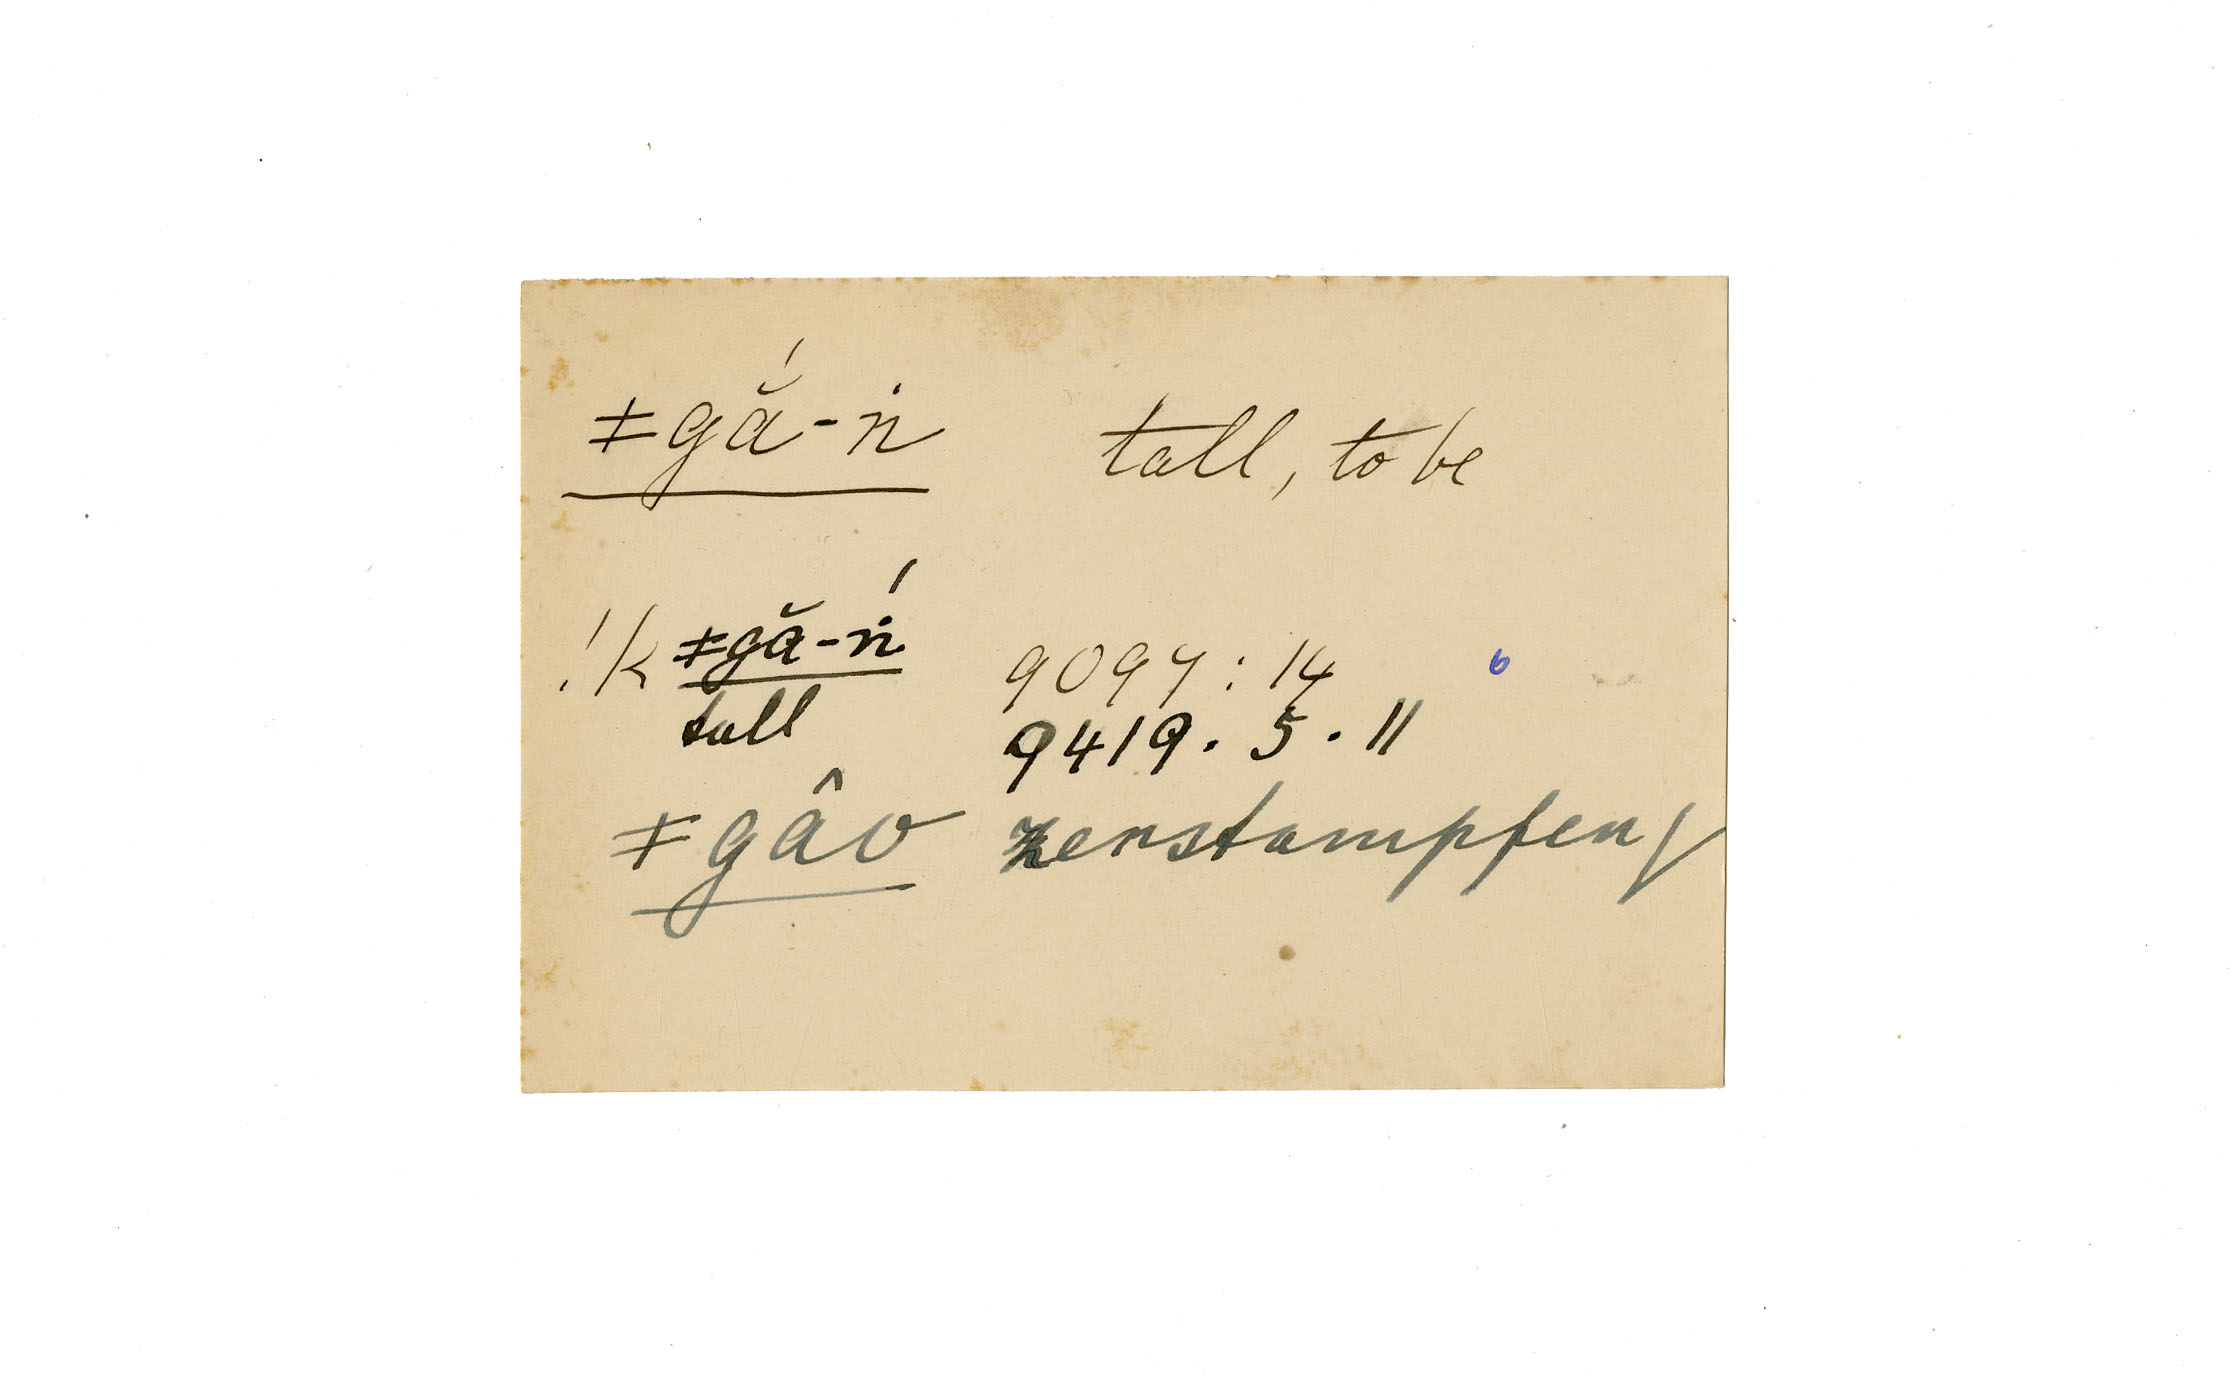 ǂgắ-ṅ tall, to be
!k ǂgă-ṅ́ 9097 : 14 6
tall 9419 . 5 . 11
ǂgâo zerstampfen